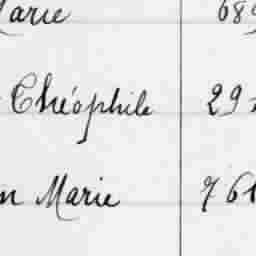 Marie 689
Théophile 29
n Marie 761